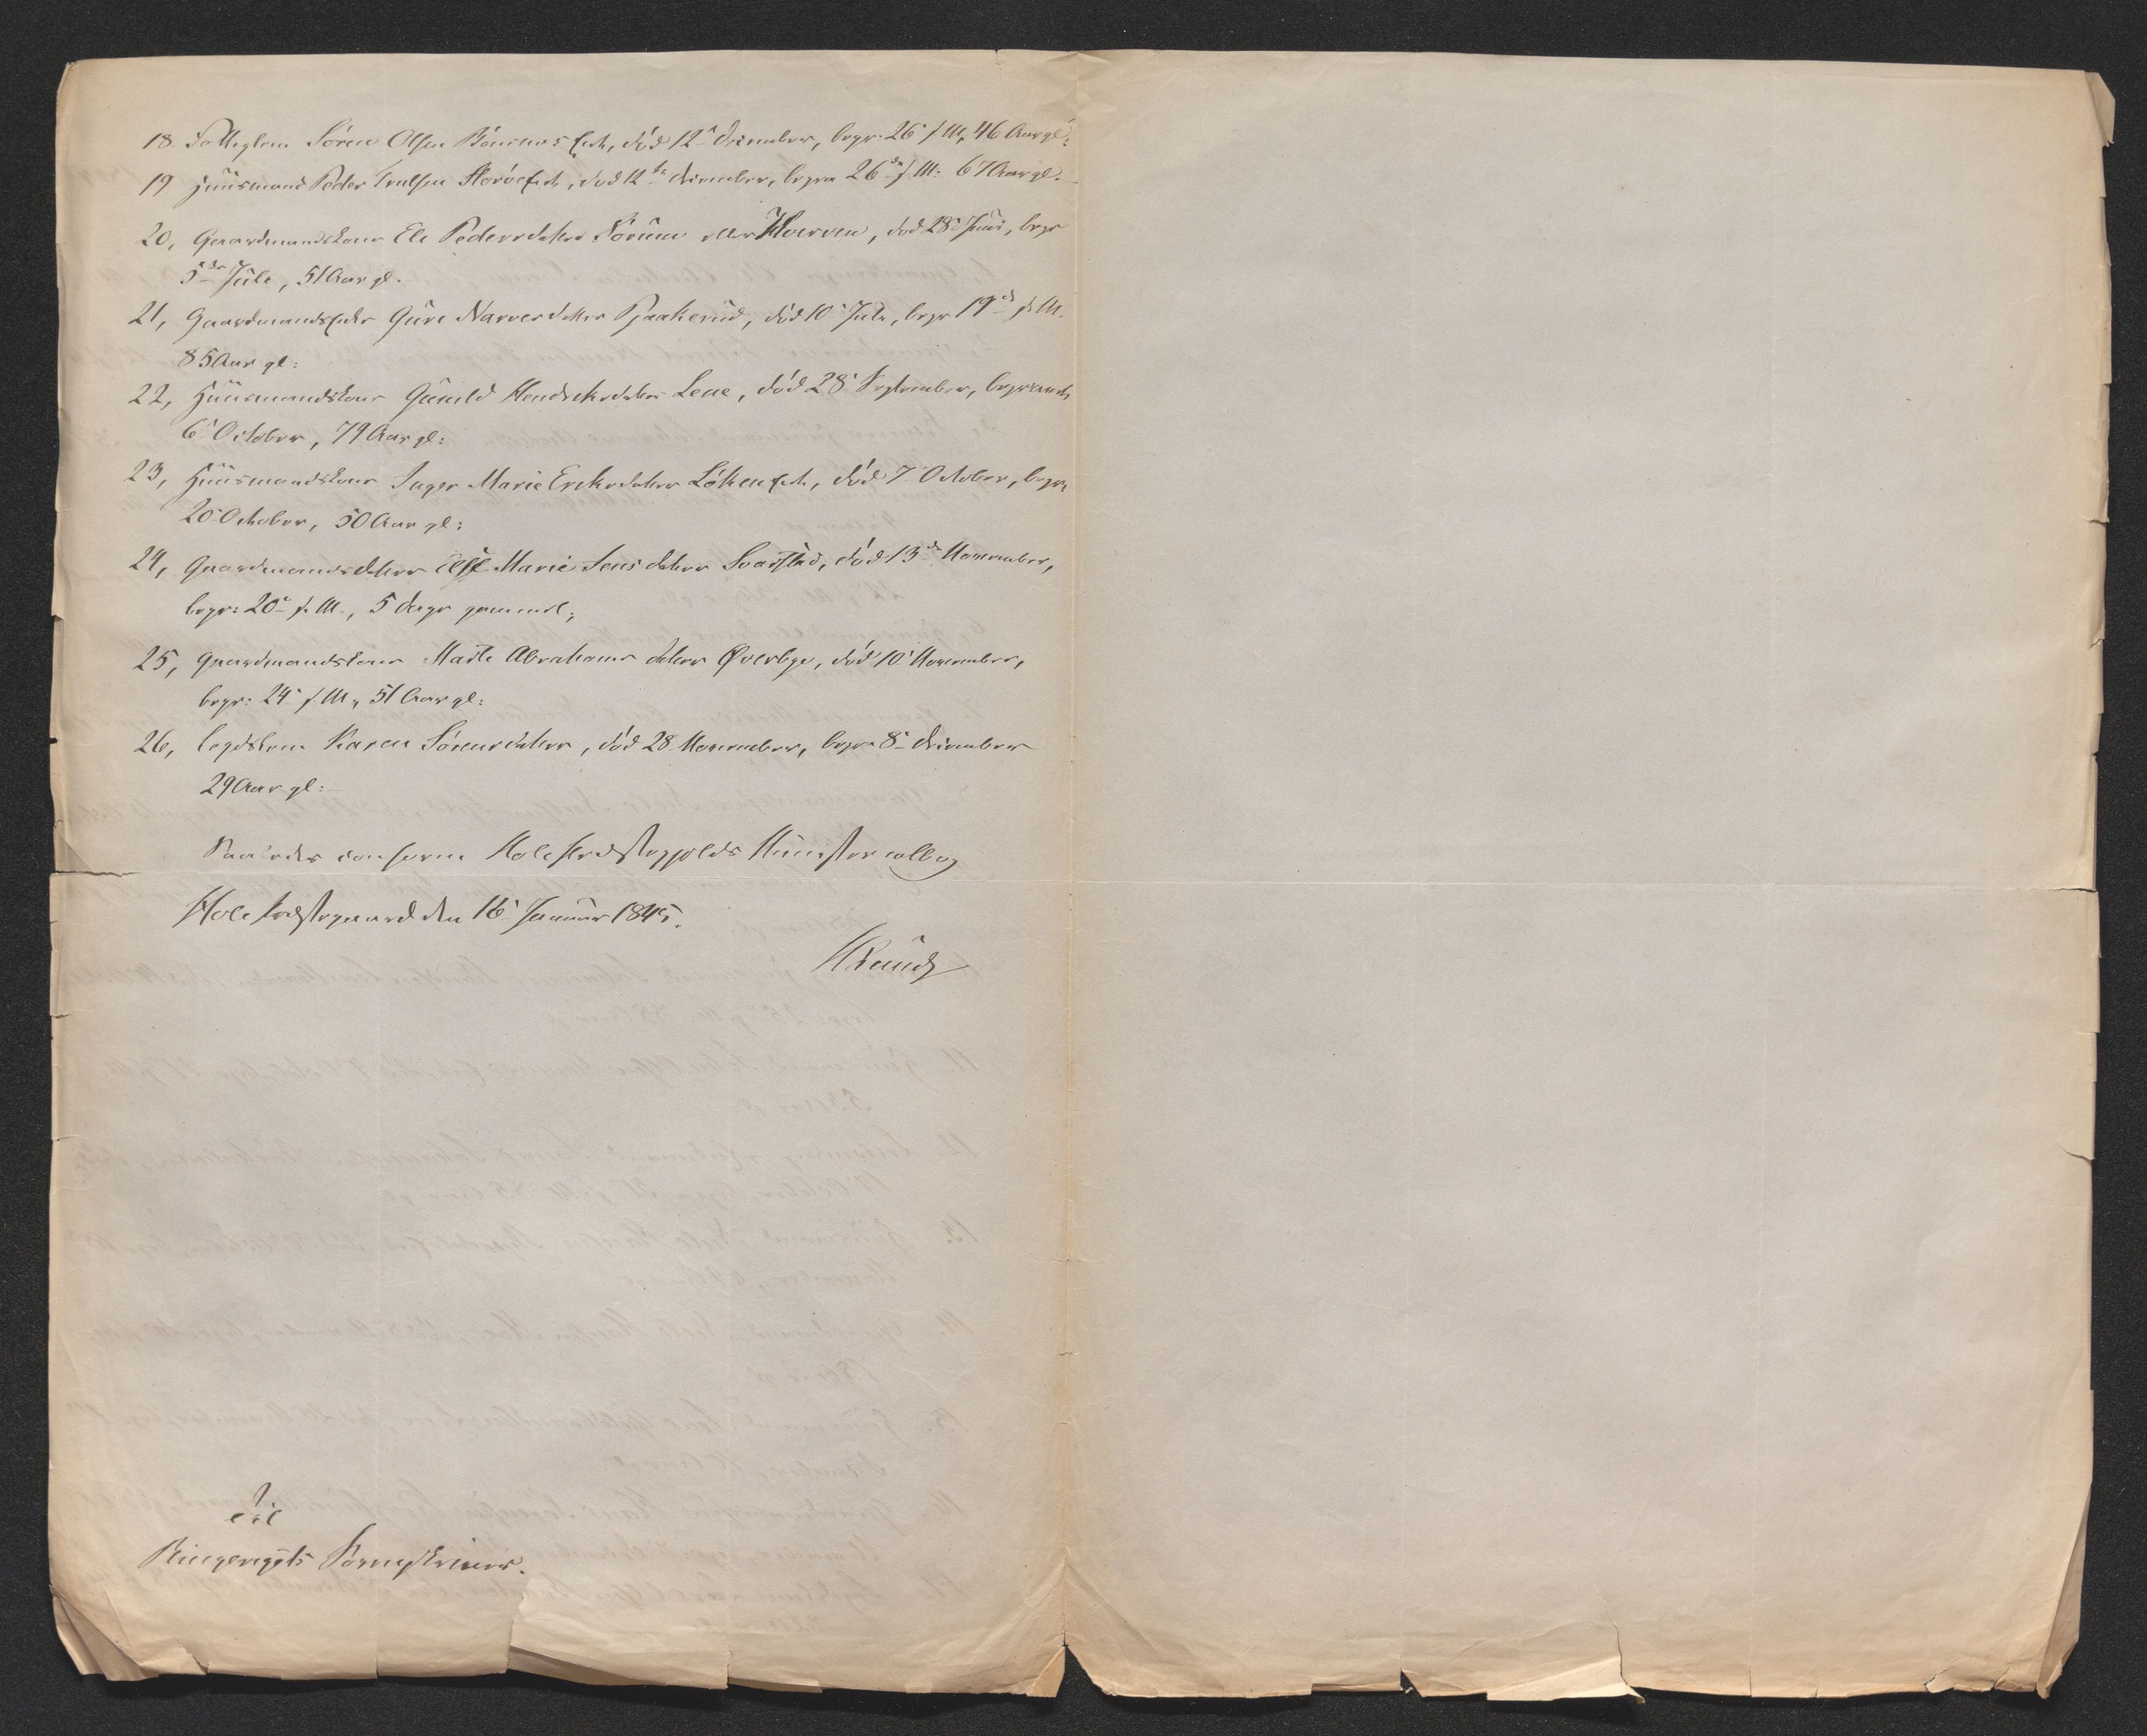 18. Fattiglem Sören Olsen Bönsnes Eie, död 12te December, begr. 26 s. M., 46 Aar gl:
19 Huusmand Peder Trulsen Storöe Eie, död 12te December, begra 26de s. M: 67 Aar gl.
20, Gaardmandskone Eli Pedersdatter Sörum eller Hverven, död 28 Juni, begr
5te Juli, 51 Aar gl.
21, Gaardmandsenke Guri Narvesdatter Pjaakerud, död 10 Juli, begr 19de s. M.
85 Aar gl:
22, Huusmandskone Gunild Hendriksdatter Lene, död 28 September, begravet
6 October, 79 Aar gl:
23, Huusmandskone Inger Marie Eriksdatter Löken Eie, död 7 October, begra
20 October, 50 Aar gl:
24, Gaardmandsdatter Else Marie Jensdatter Svarstad, död 13de November,
begr: 20 s. M., 5 Dage gammel;
25, Gaardmandskone Marte Abrahamsdatter Øverbye, död 10 November,
begr: 24 s. M., 51 Aar gl:
26, Legdslem Karen Sörensdatter, död 28 November, begr 8 December
29 Aar gl:
Saaledes conform Hole Præstegjelds Ministerialbog
Hole Præstegaard den 16 Januar 1845.
Til
Ringeriges Sorenskriver.